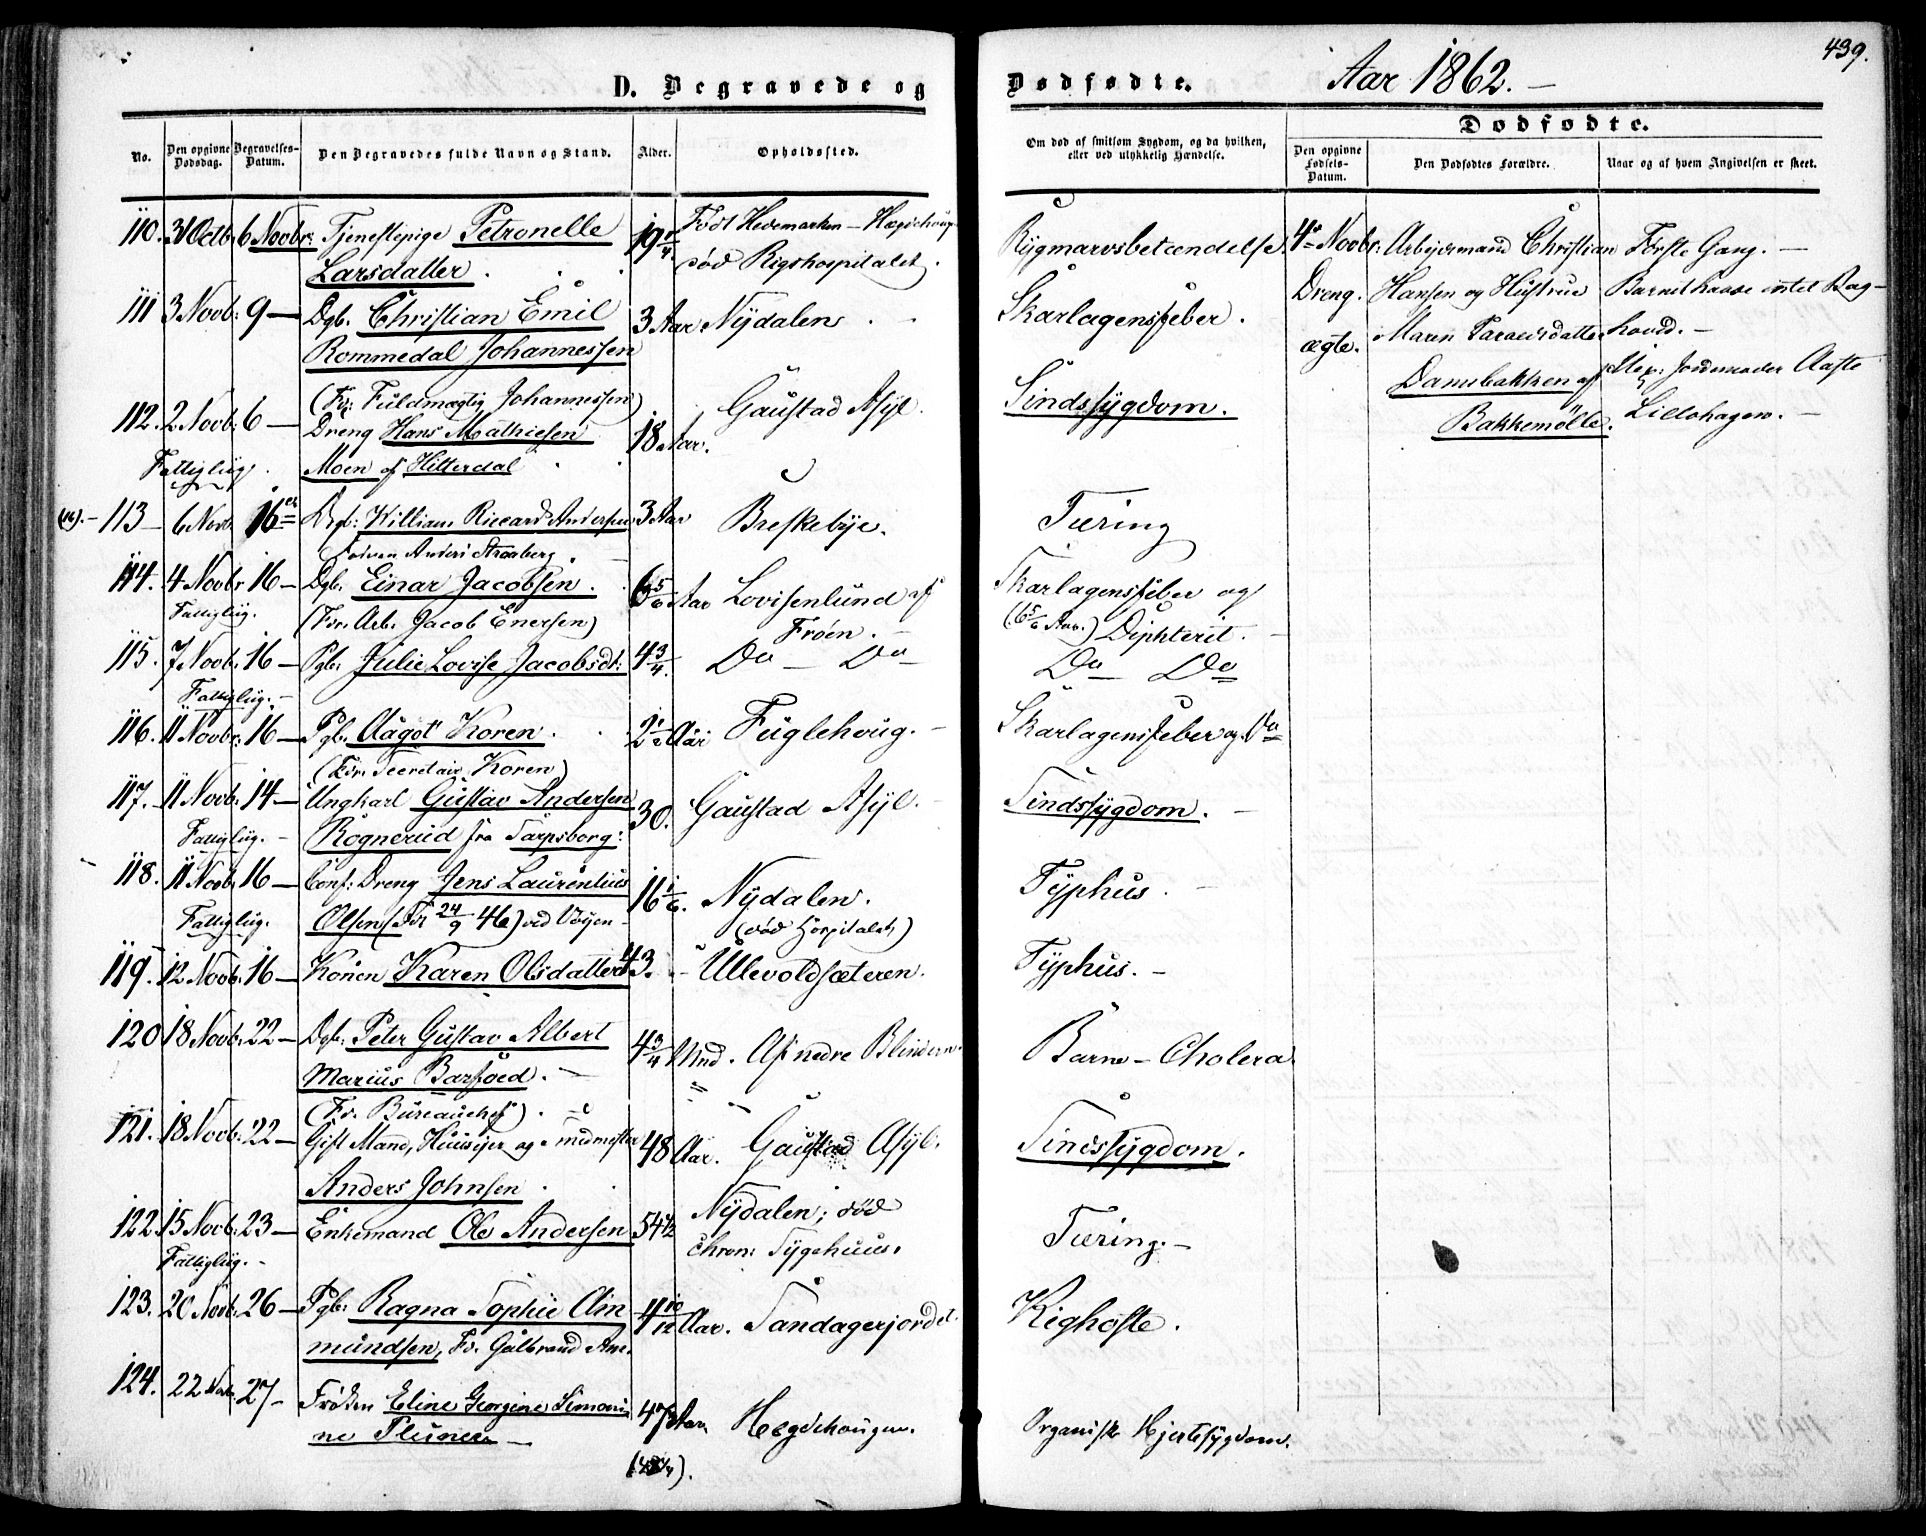 439.
D. Begravede og Dødfødte. Aar 1862. –
Dødfødte.
No.
Den opgivne Dødsdag.
Begravelses-Datum.
Den Begravedes fulde Navn og Stand.
Alder.
Opholdssted.
Om død af smitsom Sygdom, og da hvilken, eller ved ulykkelig Hændelse.
Den opgivne Fødsels-Datum.
Den Dødfødtes Forældre.
Naar og af hvem Angivelsen er skeet.
110. 31 Octb. 6 Novbr: Tjenestepige Petronelle 19 1/4 Født Hedemarken – Hægdehoug- Rygmarvsbetændelse.
Larsdatter. død Rigshospitalet.
4de Novbr: Arbeidsmand Christian Første Gang. –
Dreng. Hansen og Hustrue Barnet havde intet Bag-
ægte. Maren hoved. –
Damsbakken af Jordemoder Aaste
Bakkemølle. Lillehagen. –
111 3 Novb: 9 – Dgb. Christian Emil 3 Aar Nydalen. Skarlagensfeber.
Rommedal Johannessen
(Fdr: Fuldmægtig Johannessen)
112. 2 Novb: 6 – Dreng Hans Mathiesen 18 Aar. Gaustad Asyl. Sindssygdom.
Fattiglig. Moen af Hitterdal
(14). – 113 – 6 Novb. 16 Dgb: William Riccard Andersen 3 Aar Breskebye. Tæring
Anders Straaberg.
114. 4 Novbr 16 – Dgb. Einar Jacobsen. 6 5/6 Aar Lovisenlund af Skarlagensfeber og
Fattiglig. (Fdr. Arb. Jacob Enersen) Frøen. – (6 5/6 Aar.) Diphterit. –
115. 7 Novb: 16 – Pgb. Julie Lovise Jacobsdt: 4 3/4. Do – Do Do – Do
Fattiglig. –
116. 11 Novbr: 16 – Pgb. Aagot Koren. 2 1/2 Aar Fuglehoug. – Skarlagensfeber og Do
(Fdr. Secretair Koren)
117. 11 Novb: 14 – Ungkarl Gustav Andersen 30. Gaustad Asyl. – Sindssygdom. –
Fattiglig. – Rognerud fra Sarpsborg.
118. 11 Novb: 16 – Conf: Dreng Jens Laurentius 16 1/6. Nydalen. Typhus.
Fattiglig. Olsen (24/9 46) ved Vøyen – (død Hospitalet)
119. 12 Novb: 16 – Konen Karen Olsdatter 43. – Ullevoldsæteren. Typhus. –
120 18 Novb: 22 – Dgb: Peter Gustav Albert 4 3/4 Mnd. Af nedre Blindern. Barne – Cholera
Marius Barfoed. –
(Fdr. Bureauchef).
121. 18 Novb: 22 – Gift Mand, Huuseier og 48 Aar. Gaustad Asyl. Sindssygdom.
Anders Johnsen
122. 15 Novb: 23 – Enkemand Ole Andersen 54 1/2 Nydalen; død Tæring. –
Fattiglig. – chron: Sygehuus.
123. 20 Novb: 26 – Pgb: Ragna Sophie Am 4 10/12 Aar. Sandagerjordet. Kighoste.
mundsen, Fdr. Gulbrand Am.
124. 22 Novb. 27 – Frøken Eline Georgine Simoni 47 Aar Hægdehougen. Organisk Hjertesygdom.
ne –